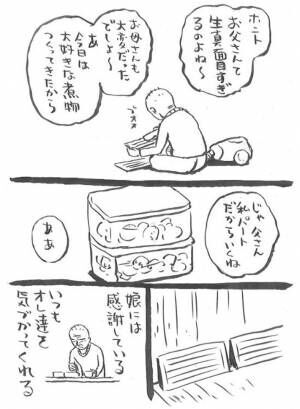 ホント
お父さんて
生真面目すぎ
るのよね〜
お母さんも
大変だった
でしょ〜
あ
今日は
大好きな煮物
つくってきたから
じゃ父さん
私パート
だからいくね
ああ
娘には
感謝している
いつも
オレ達を
気づかってくれる